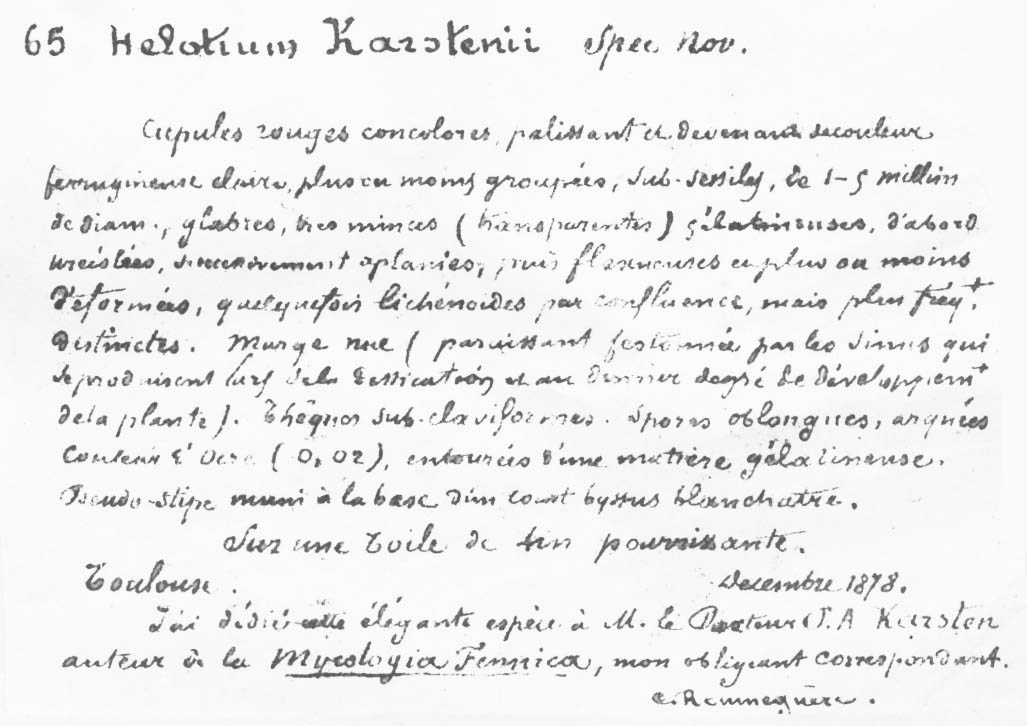 65 Helotium Karstenii Spec Nov.
Cupules rouges concolores, palissant et devenant de couleur
ferrugineuse claire, plus ou moins groupées, sub-sessiles, de 1-5 millim
de diam., glabres, tres minces (transparentes) gélatineuses, d'abord
urcéolées, successivement aplanies, puis flexueuses et plus ou moins
déformées, quelquefois lichénoides par confluence, mais plus fréqt.
distinctes. Marge nue (paraissant festonnée par les sinus qui
se produisent lors de la dessication et au dernier degré de développient
de la plante). Thèques sub-claviformes. Spores oblongues, arquées
couleur d'ocre (0,02), entourées d'une matière gélatineuse.
Pseudo-stipe muni à la base d'un court byssus blanchatre.
Sur une toile de lin pourrissante.
Toulouse. Decembre 1878.
J'ai dédié cette élégante espèce à M. le Docteur P. A Karsten
auteur de la Mycologia Fennica, mon obligeant correspondant.
C. Roumeguère.